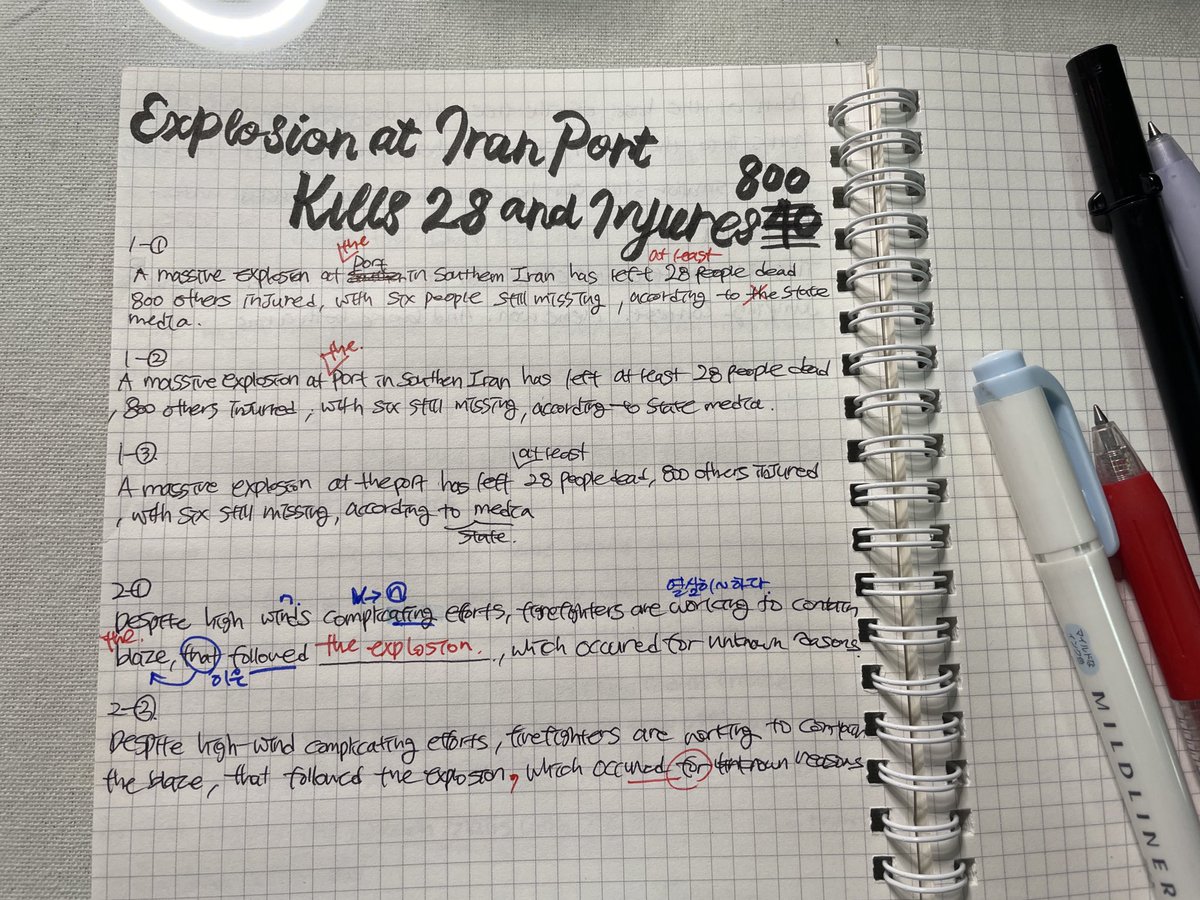 Explosion at Iran Port
800
Kills 28 and Injures 40
1-①
the
Port
at least
A massive explosion at in Southern Iran has left 28 people dead
800 others injured, with six people still missing, according to the state
media.
1-②
the
A massive explosion at port in Southen Iran has left at least 28 people dead
, 800 others injured, with six still missing, according to state media.
1-③
at least
A massive explosion at the port has left 28 people dead, 800 others injured
, with six still missing, according to media
state.
2-①
n. V→ⓝ 열심히~하다
Despite high winds complicating efforts, firefighters are working to contain
the
blaze, that followed the explosion., which occured for unknown reasons
이은
2-②
Despite high-wind complicating efforts, firefighters are working to contain
the blaze, that followed the explosion, which occured for unknown reasons
MILDLINER